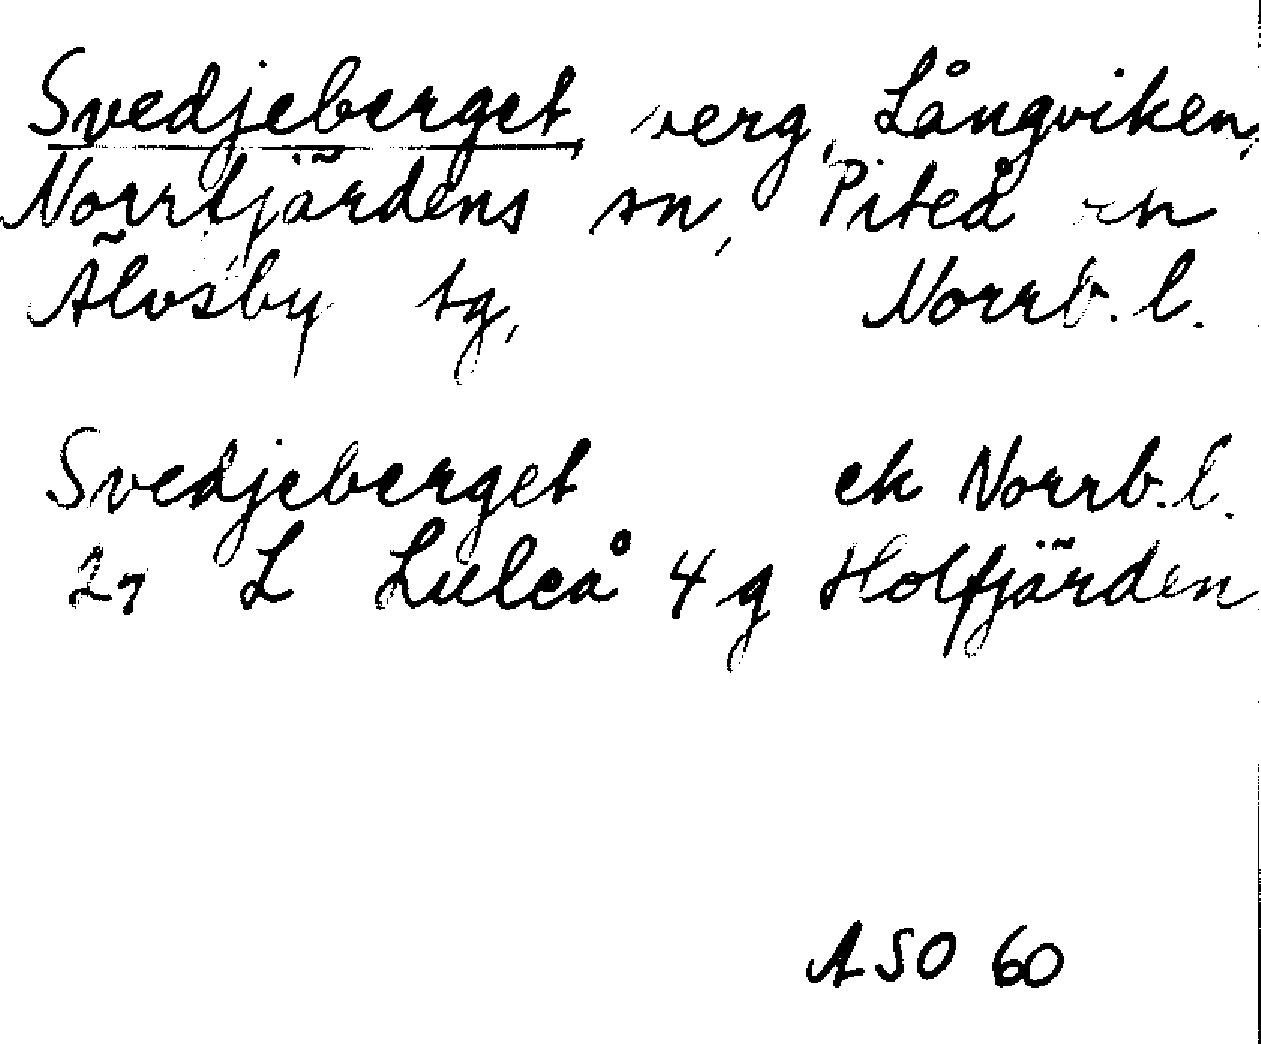 Svedjeberget, berg, Långviken,
Norrfjärdens sn, Piteå o
Älvsby tg, Norrb. l.
Svedjeberget ek Norrb. l.
27 L Luleå 4 g Holfjärden
ASO 60